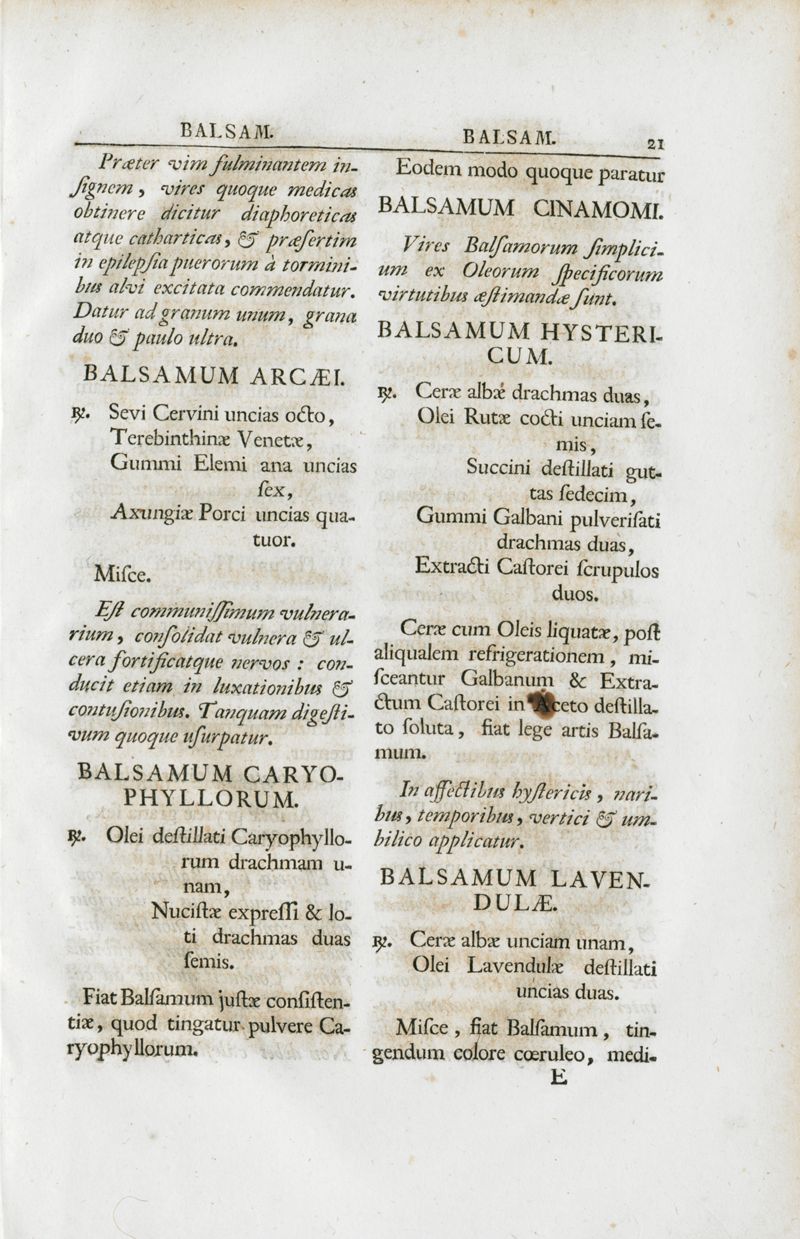 BALSAM.
Præter vim fulminantem in-
ſignem, vires quoque medicas
obtinere dicitur diaphoreticas
atque catharticas, & præſertim
in epilepſia puerorum à tormini-
bus alvi excitata commendatur.
Datur ad granum unum, grana
duo & paulo ultra.
BALSAMUM ARCÆI.
℞. Sevi Cervini uncias octo,
Terebinthinæ Venetæ,
Gummi Elemi ana uncias
ſex,
Axungiæ Porci uncias qua-
tuor.
Miſce.
Eſt communiſſimum vulnera-
rium, conſolidat vulnera & ul-
cera fortificatque nervos : con-
ducit etiam in luxationibus &
contuſionibus. Tanquam digeſti-
vum quoque uſurpatur.
BALSAMUM CARYO-
PHYLLORUM.
℞. Olei deſtillati Caryophyllo-
rum drachmam u-
nam,
Nuciſtæ expreſſi & lo-
ti drachmas duas
ſemis.
Fiat Balſamum juſtæ conſiſten-
tiæ, quod tingatur pulvere Ca-
ryophyllorum.
BALSAM. 21
Eodem modo quoque paratur
BALSAMUM CINAMOMI.
Vires Balſamorum ſimplici-
um ex Oleorum ſpecificorum
virtutibus æſtimandæ ſunt.
BALSAMUM HYSTERI-
CUM.
℞. Ceræ albæ drachmas duas,
Olei Rutæ cocti unciam ſe-
mis,
Succini deſtillati gut-
tas ſedecim,
Gummi Galbani pulveriſati
drachmas duas,
Extracti Caſtorei ſcrupulos
duos.
Ceræ cum Oleis liquatæ, poſt
aliqualem refrigerationem, mi-
ſceantur Galbanum & Extra-
ctum Caſtorei in Aceto deſtilla-
to ſoluta, fiat lege artis Balſa-
mum.
In affectibus hyſtericis, nari-
bus, temporibus, vertici & um-
bilico applicatur.
BALSAMUM LAVEN-
DULÆ.
℞. Ceræ albæ unciam unam,
Olei Lavendulæ deſtillati
uncias duas.
Miſce, fiat Balſamum, tin-
gendum colore cœruleo, medi-
E